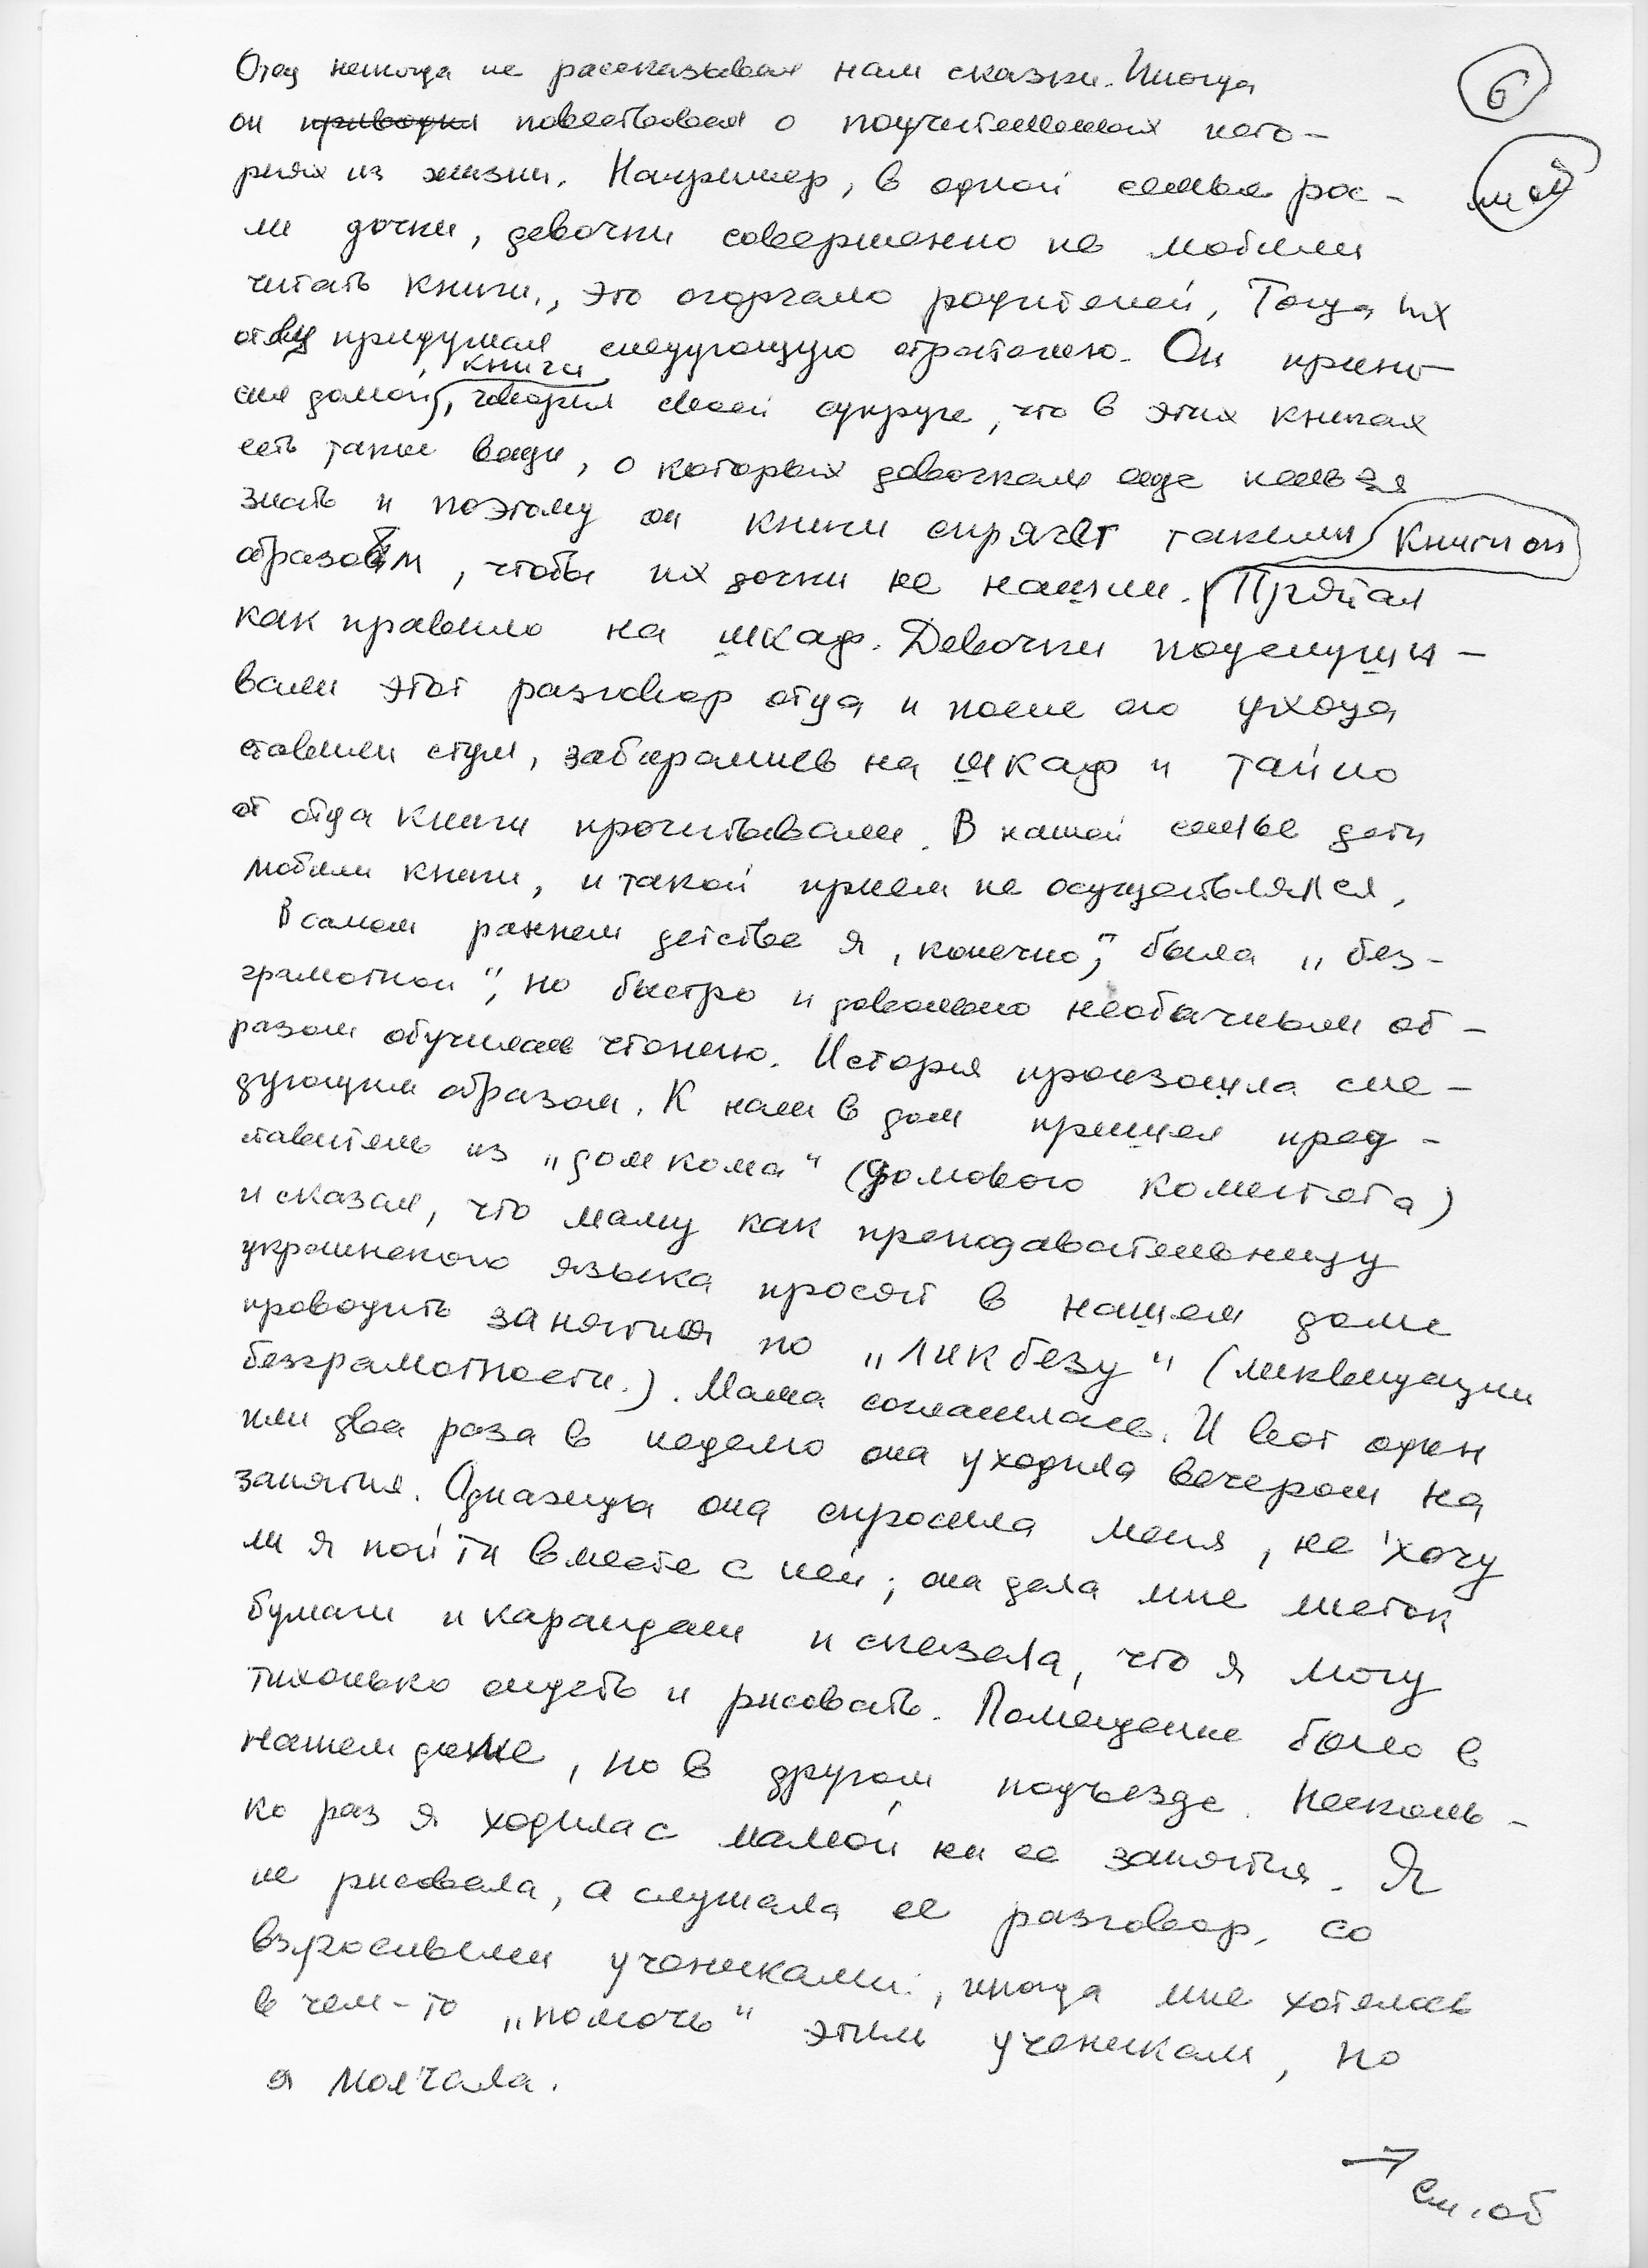 6
Отец никогда не рассказывал нам сказки. Иногда
он приводил повествовал о поучительных исто-
риях из жизни. Например, в одной семье рос-
ли дочки, девочки совершенно не любили
читать книги, это огорчало родителей, Тогда их
отец придумал следующую стратегию. Он прино-
книги
сил домой, говорил своей супруге, что в этих книгах
есть такие вещи, о которых девочкам еще нельзя
знать и поэтому он книги спрячет таким
образом, чтобы их дочки не нашли. Книги он Прятал
как правило на шкаф. Девочки подслуши-
вали этот разговор отца и после его ухода
ставили стул, забирались на шкаф и тайно
от отца книги прочитывали. В нашей семье дети
любили книги, и такой прием не осуществлялся.
В самом раннем детстве я, конечно, была „без-
грамотной", но быстро и довольно необычным об-
разом обучилась чтению. История произошла сле-
дующим образом. К нам в дом пришел пред-
ставитель из „домкома" (домового комитета)
и сказал, что маму как преподавательницу
украинского языка просят в нашем доме
проводить занятия по „ликбезу" (ликвидации
безграмотности.). Мама согласилась. И вот один
или два раза в неделю она уходила вечером на
занятия. Однажды она спросила меня, не хочу
ли я пойти вместе с ней; она дала мне листок
бумаги и карандаш и сказала, что я могу
тихонько сидеть и рисовать. Помещение было в
нашем доме, но в другом подъезде. Несколь-
ко раз я ходила с мамой на ее занятия. Я
не рисовала, а слушала ее разговор, со
взрослыми учениками, иногда мне хотелось
в чем-то „помочь" этим ученикам, но
я молчала.
→
См. об